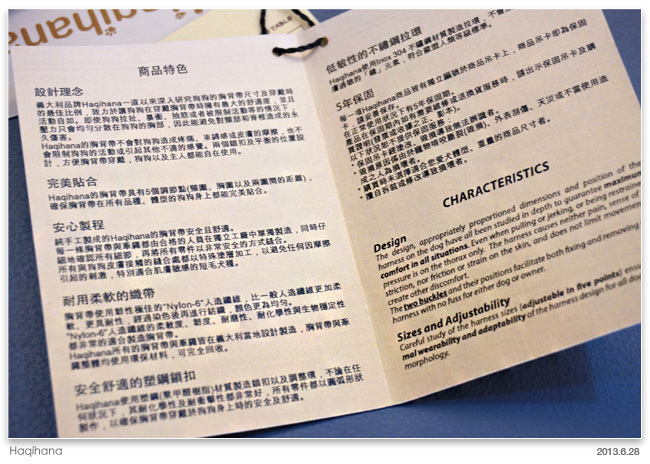 Haqihana
TABLE
商品特色
設計理念
義大利品牌Haqihana一直以來深入研究狗狗的胸背帶尺寸及穿戴時
的最佳比例，致力於讓狗狗在穿戴胸背帶時擁有最大的舒適度，並且
活動自如。即使狗狗拉扯、暴衝、抽筋或者被限制活動等的情況下，
壓力只會均勻分散在狗狗的胸部，因此能避免對頸部和脊椎造成的永
久傷害。
Haqihana的胸背帶不會對狗狗造成疼痛、束縛感或皮膚的摩擦，也不
會限制狗狗的活動或引起其他不適的感覺。兩個鎖扣及平衡的位置設
計，方便胸背帶穿戴，狗狗以及主人都能自在使用。
完美貼合
Haqihana的胸背帶具有5個調節點(頸圍、胸圍以及兩圍間的距離)，
確保胸背帶在所有品種、體型的狗狗身上都能完美貼合。
安心製程
純手工製成的Haqihana的胸背帶安全且舒適。
每一條胸背帶與牽繩都由合格的人員在獨立工廠中單獨製造，同時仔
細地確認所有細節，再將所有零件以非常安全的方式縫合。
所有與狗狗皮膚接觸的縫合處都以特殊塗層加工，以避免任何因摩擦
引起的刺激，特別適合肌膚敏感的短毛犬種。
耐用柔軟的織帶
胸背帶使用韌性極佳的"Nylon-6"人造纖維，比一般人造纖維更加柔
軟、更具耐性，經過染色後再進行紡織，顏色更為均勻。
"Nylon-6"人造纖維的柔軟度、韌度、耐磨性、耐化學性與生物穩定性
都非常的適合製造胸背帶。
Haqihana所有的胸背帶與牽繩皆在義大利當地設計製造，胸背帶與牽
繩整體均使用環保材料，可完全回收。
安全舒適的塑鋼鎖扣
Haqihana使用塑鋼(聚甲醛樹脂)材質製造鎖扣以及調整環，不論在任
何狀況下，其耐化學性及耐衝擊性都非常好，所有零件都以圓弧形狀
製作，以確保胸背帶穿戴於狗狗身上時的安全及舒適。
低敏性的不鏽鋼拉環
Haqihana使用Inox 304 不鏽鋼材質製造拉環，不會
膚過敏的「鎳」元素，符合歐盟人類等級標準。
5年保固
每一項Haqihana商品皆有獨立編號於商品吊卡上，商品吊卡即為保固
卡，請妥善保存。
在正常使用狀況下有5年保固期。
產品在保固期內如有需要維修或送換貨服務時，請出示保固吊卡及購
買證明
以下狀況恕不提供保固服務：
CHARACTERISTICS
Design
The design, appropriately proportioned dimensions and position of the
harness on the dog have all been studied in depth to guarantee maximum
comfort in all situations. Even when pulling or jerking, or being restrained
pressure is on the thorax only. The harness causes neither pain, sense of
striction, nor friction or strain on the skin, and does not limit movement
create other discomfort.
The two buckles and their positions facilitate both fixing and removing
harness with no fuss for either dog or owner.
Sizes and Adjustability
Careful study of the harness sizes (adjustable in five points) ensu
mal wearability and adaptability of the harness design for all dog
morphology.
Haqihana
2013.6.28